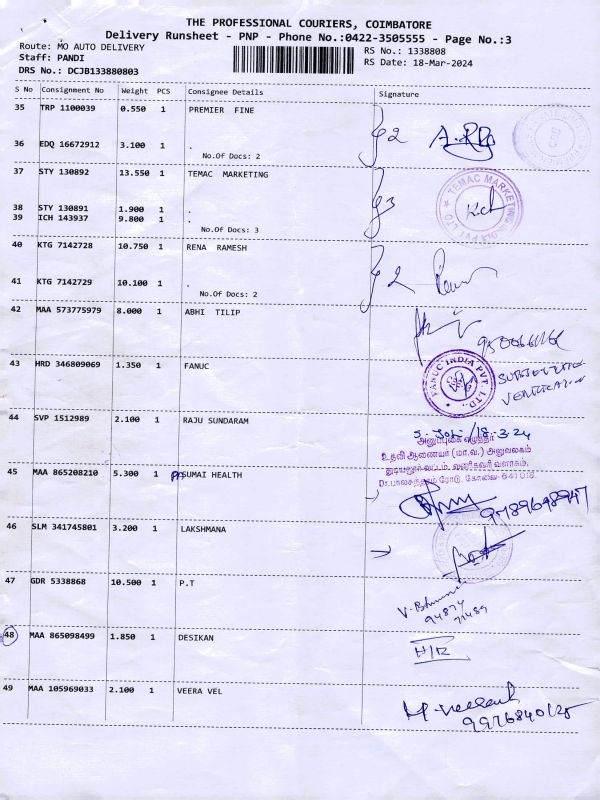 THE PROFESSIONAL COURIERS, COIMBATORE
Delivery Runsheet - PNP - Phone No.:0422-3505555 - Page No.:3
Route: MO AUTO DELIVERY RS No.: 1338808
Staff: PANDI RS Date: 18-Mar-2024
DRS No.: DCJB133880803
S No Consignment No Weight PCS Consignee Details Signature
35 TRP 1100039 0.550 1 PREMIER FINE
36 EDQ 16672912 3.100 1 .
No.Of Docs: 2
37 STY 130892 13.550 1 TEMAC MARKETING
TEMAC MARKETING
38 STY 130891 1.900 1 .
39 ICH 143937 9.800 1 .
No.Of Docs: 3
40 KTG 7142728 10.750 1 RENA RAMESH
41 KTG 7142729 10.100 1 .
No.Of Docs: 2
42 MAA 573775979 8.000 1 ABHI TILIP
43 HRD 346809069 1.350 1 FANUC
FANUC INDIA PVT. LTD.
44 SVP 1512989 2.100 1 RAJU SUNDARAM
18-3-24
உதவி ஆணையர் (மா.வ.) அலுவலகம்
45 MAA 865208210 5.300 1 SUMAI HEALTH
9789698947
46 SLM 341745801 3.200 1 LAKSHMANA
47 GDR 5338868 10.500 1 P.T
94874
71489
48 MAA 865098499 1.850 1 DESIKAN
H/R
49 MAA 105969033 2.100 1 VEERA VEL